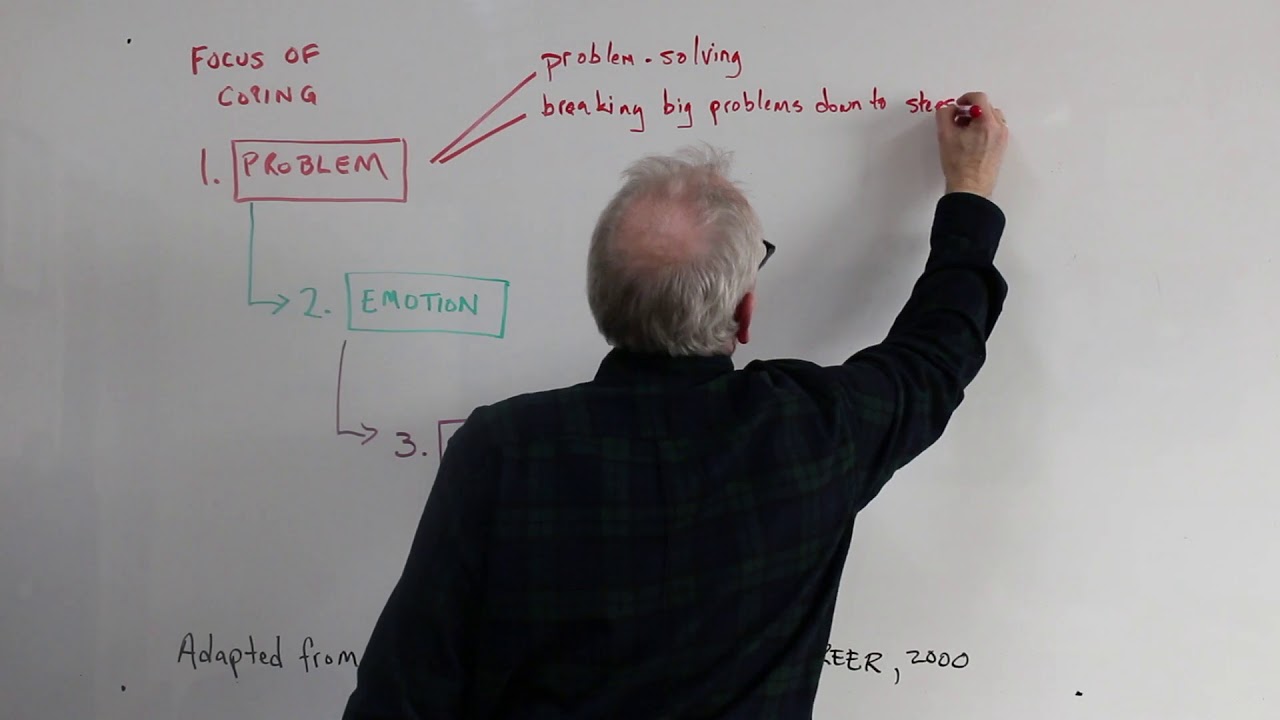 FOCUS OF
COPING
problem-solving
breaking big problems down to steps
1. PROBLEM
2. EMOTION
3.
Adapted from
, 2000